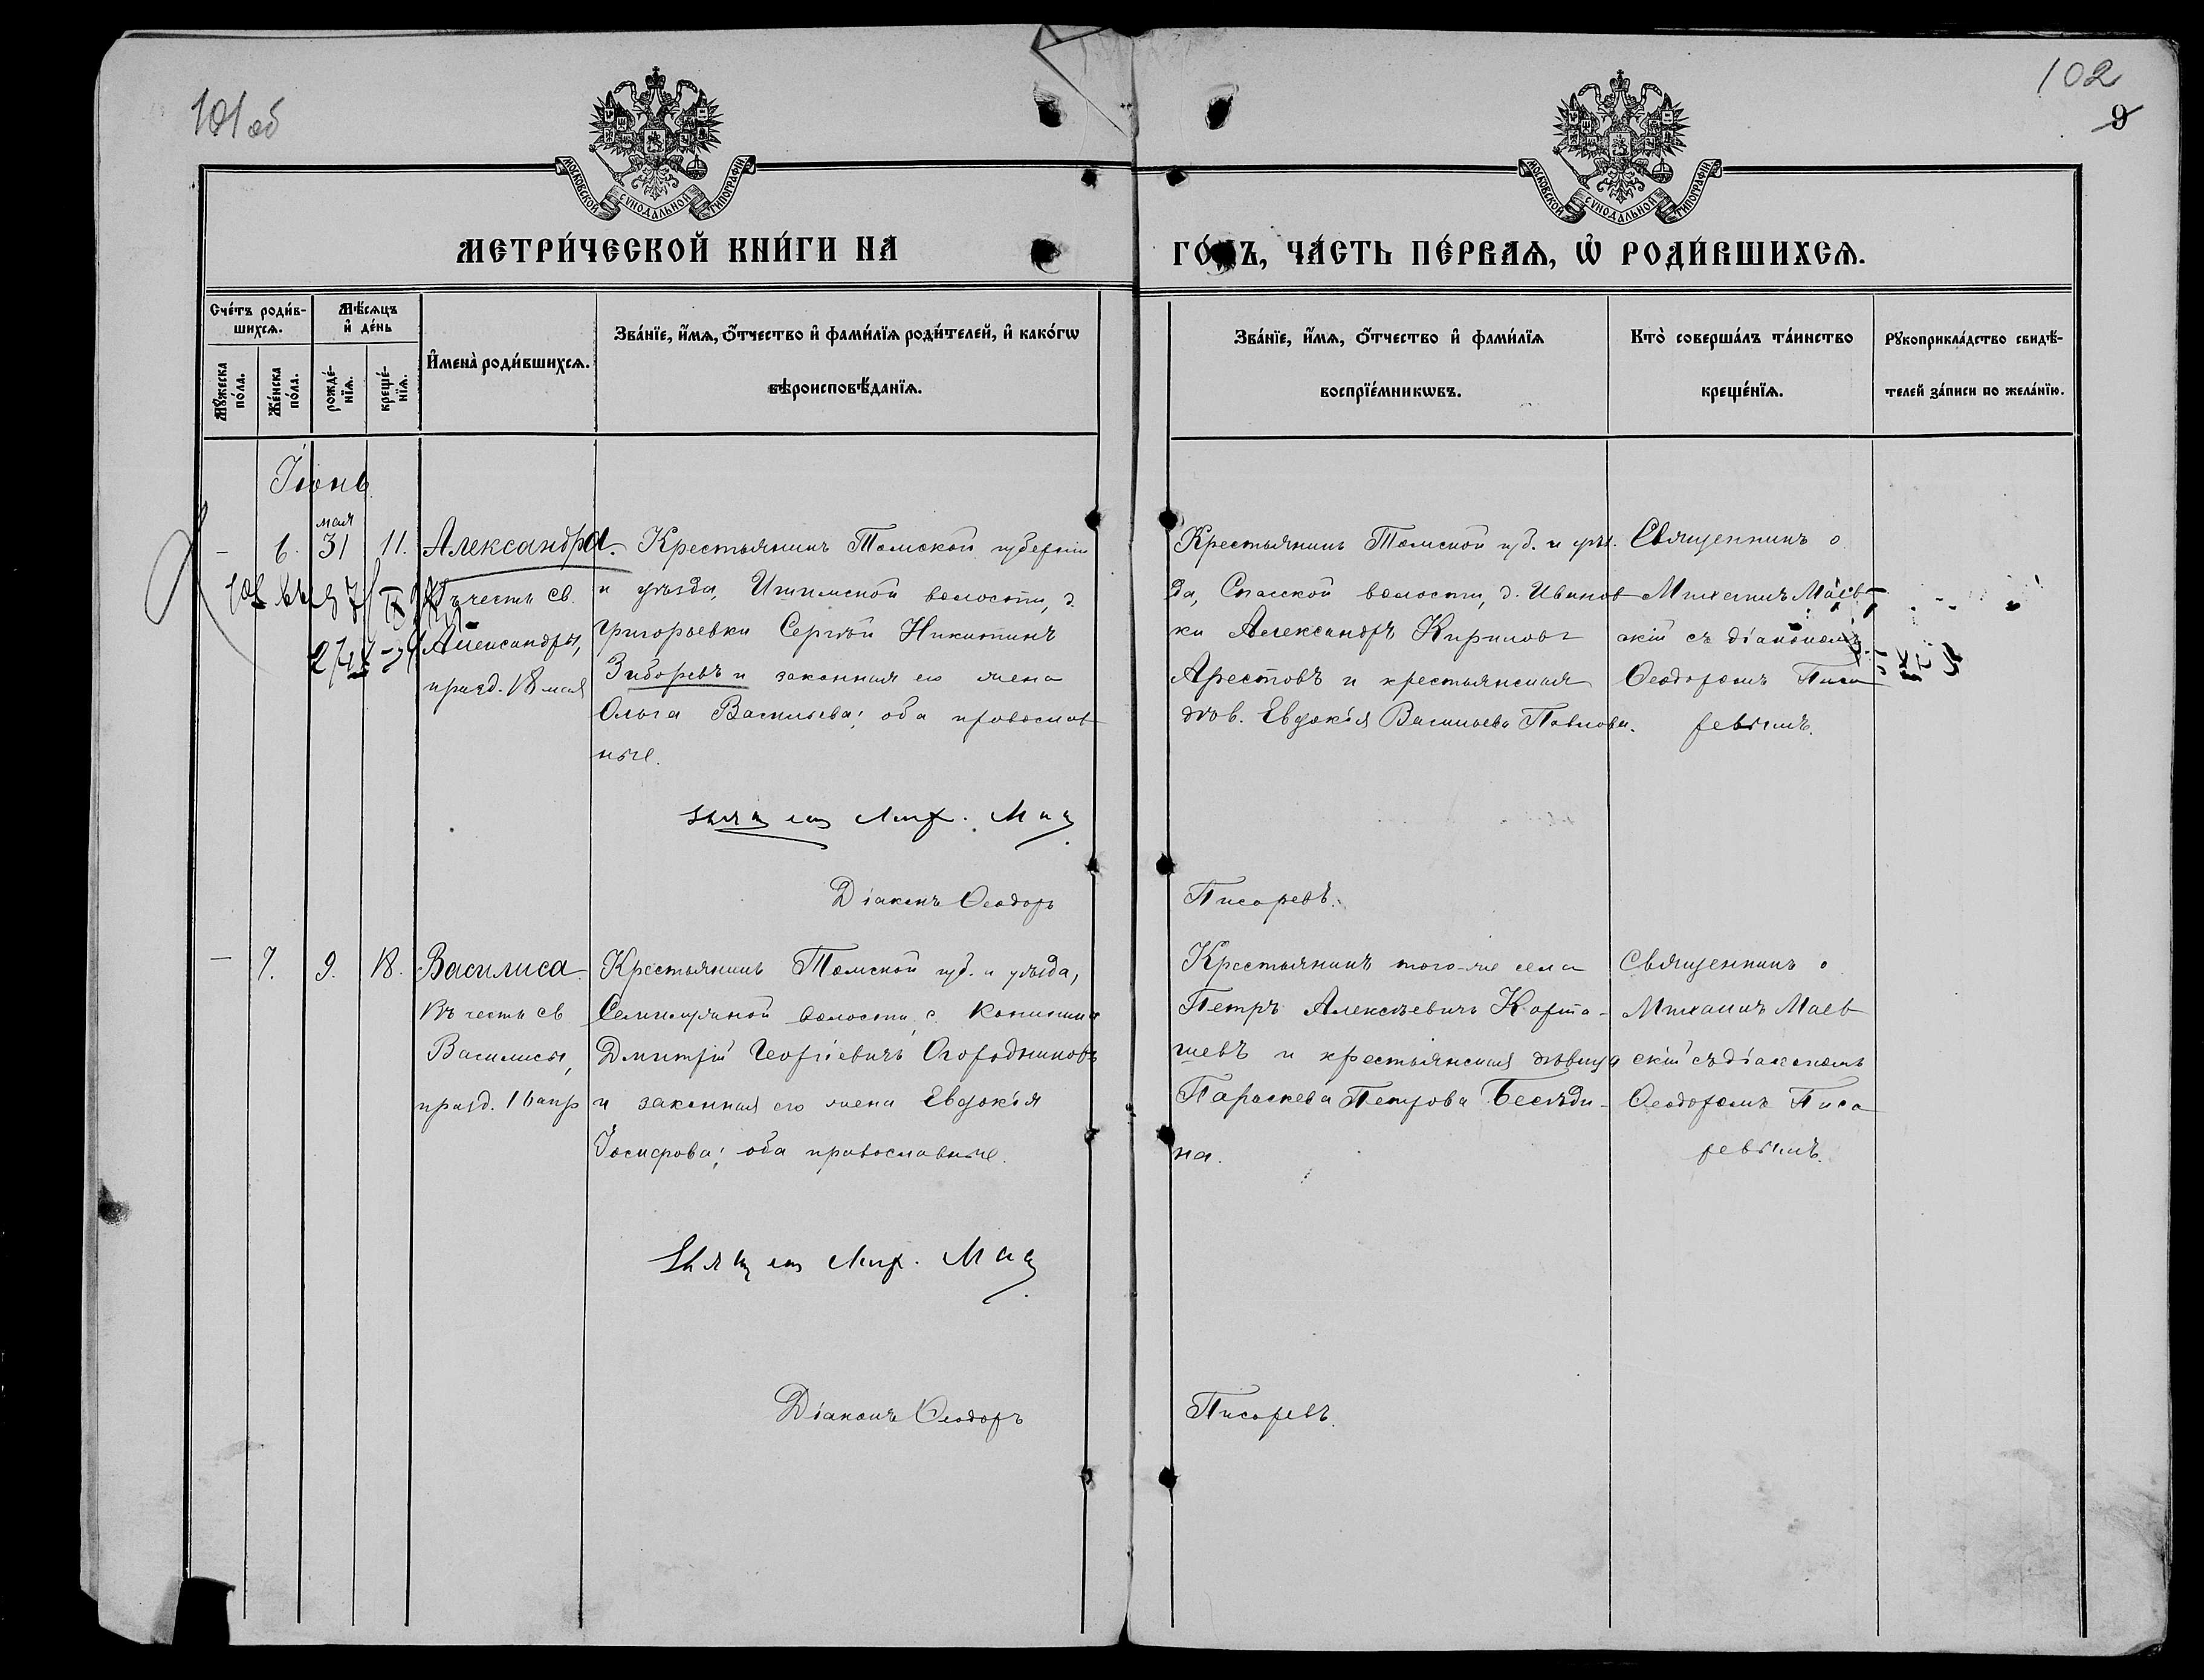 101 об
102
9
МОСКОВСКОЙ СѴНОДАЛЬНОЙ ТИПОГРАФІИ
МОСКОВСКОЙ СѴНОДАЛЬНОЙ ТИПОГРАФІИ
МЕТРИ́ЧЕСКОЙ КНИ́ГИ НА
ГО́ДЪ, ЧА́СТЬ ПЕ́РВАѦ, Ѡ҆ РОДИ́ВШИХСѦ.
Сче́тъ роди́в-
шихсѧ.
Мѣ́сѧцъ
и҆ де́нь
Мꙋ́жеска по́ла.
Же́нска по́ла.
рожде́-нїѧ.
креще́-нїѧ.
И҆мена̀ роди́вшихсѧ.
Зва́нїе, и҆́мѧ, ѻ҆́тчество и҆ фами́лїѧ роди́телей, и҆ како́гѡ
вѣроисповѣ́данїѧ.
Зва́нїе, и҆́мѧ, ѻ҆́тчество и҆ фами́лїѧ
воспрїе́мникѡвъ.
Кто̀ соверша́лъ та́инство
креще́нїѧ.
Рꙋкоприкла́дство свидѣ́-
телей за́писи по жела́нїю.
Іюнь
мая
– 6. 31 11. Александра.
Въ честь св.
Александры,
празд. 18 мая
Крестьянинъ Томской губерніи
и уѣзда, Ишимской волости, д.
Григорьевки Сергѣй Никитинъ
Зиборевъ и законная его жена
Ольга Васильева; оба православ
ные.
Крестьянинъ Томской губ. и уѣз.
да, Спасской волости, д. Иванов
ки Александръ Кириловъ
Арестовъ и крестьянская
дѣв. Евдокія Васильева Павлова.
Священникъ о.
Михаилъ Маев
скій съ діакономъ
Ѳеодоромъ Писа
ревымъ.
Діаконъ Ѳеодоръ
Писаревъ.
– 7. 9. 18. Василиса
Въ честь св
Василисы,
празд. 16 апр
Крестьянинъ Томской губ. и уѣзда,
волости, с.
Дмитрій Георгіевичъ Огородниковъ
и законная его жена Евдокія
Іосифова; оба православные.
Крестьянинъ того-же села
Петръ Алексѣевичъ Карта-
шевъ и крестьянская дѣвица
Параскева Петрова Бесѣди-
на.
Священникъ о.
Михаилъ Маев
скій съ діакономъ
Ѳеодоромъ Писа
ревымъ.
Діаконъ Ѳеодоръ
Писаревъ.